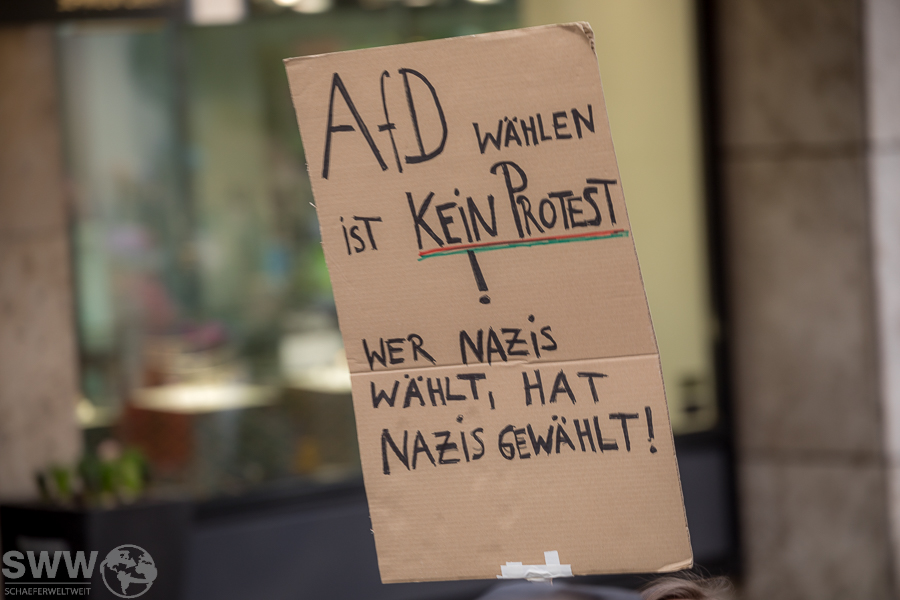 AfD WÄHLEN
iST KEiN PROTEST
!
WER NAZiS
WÄHLT, HAT
NAZiS GEWÄHLT!
SWW
SCHAEFERWELTWEIT